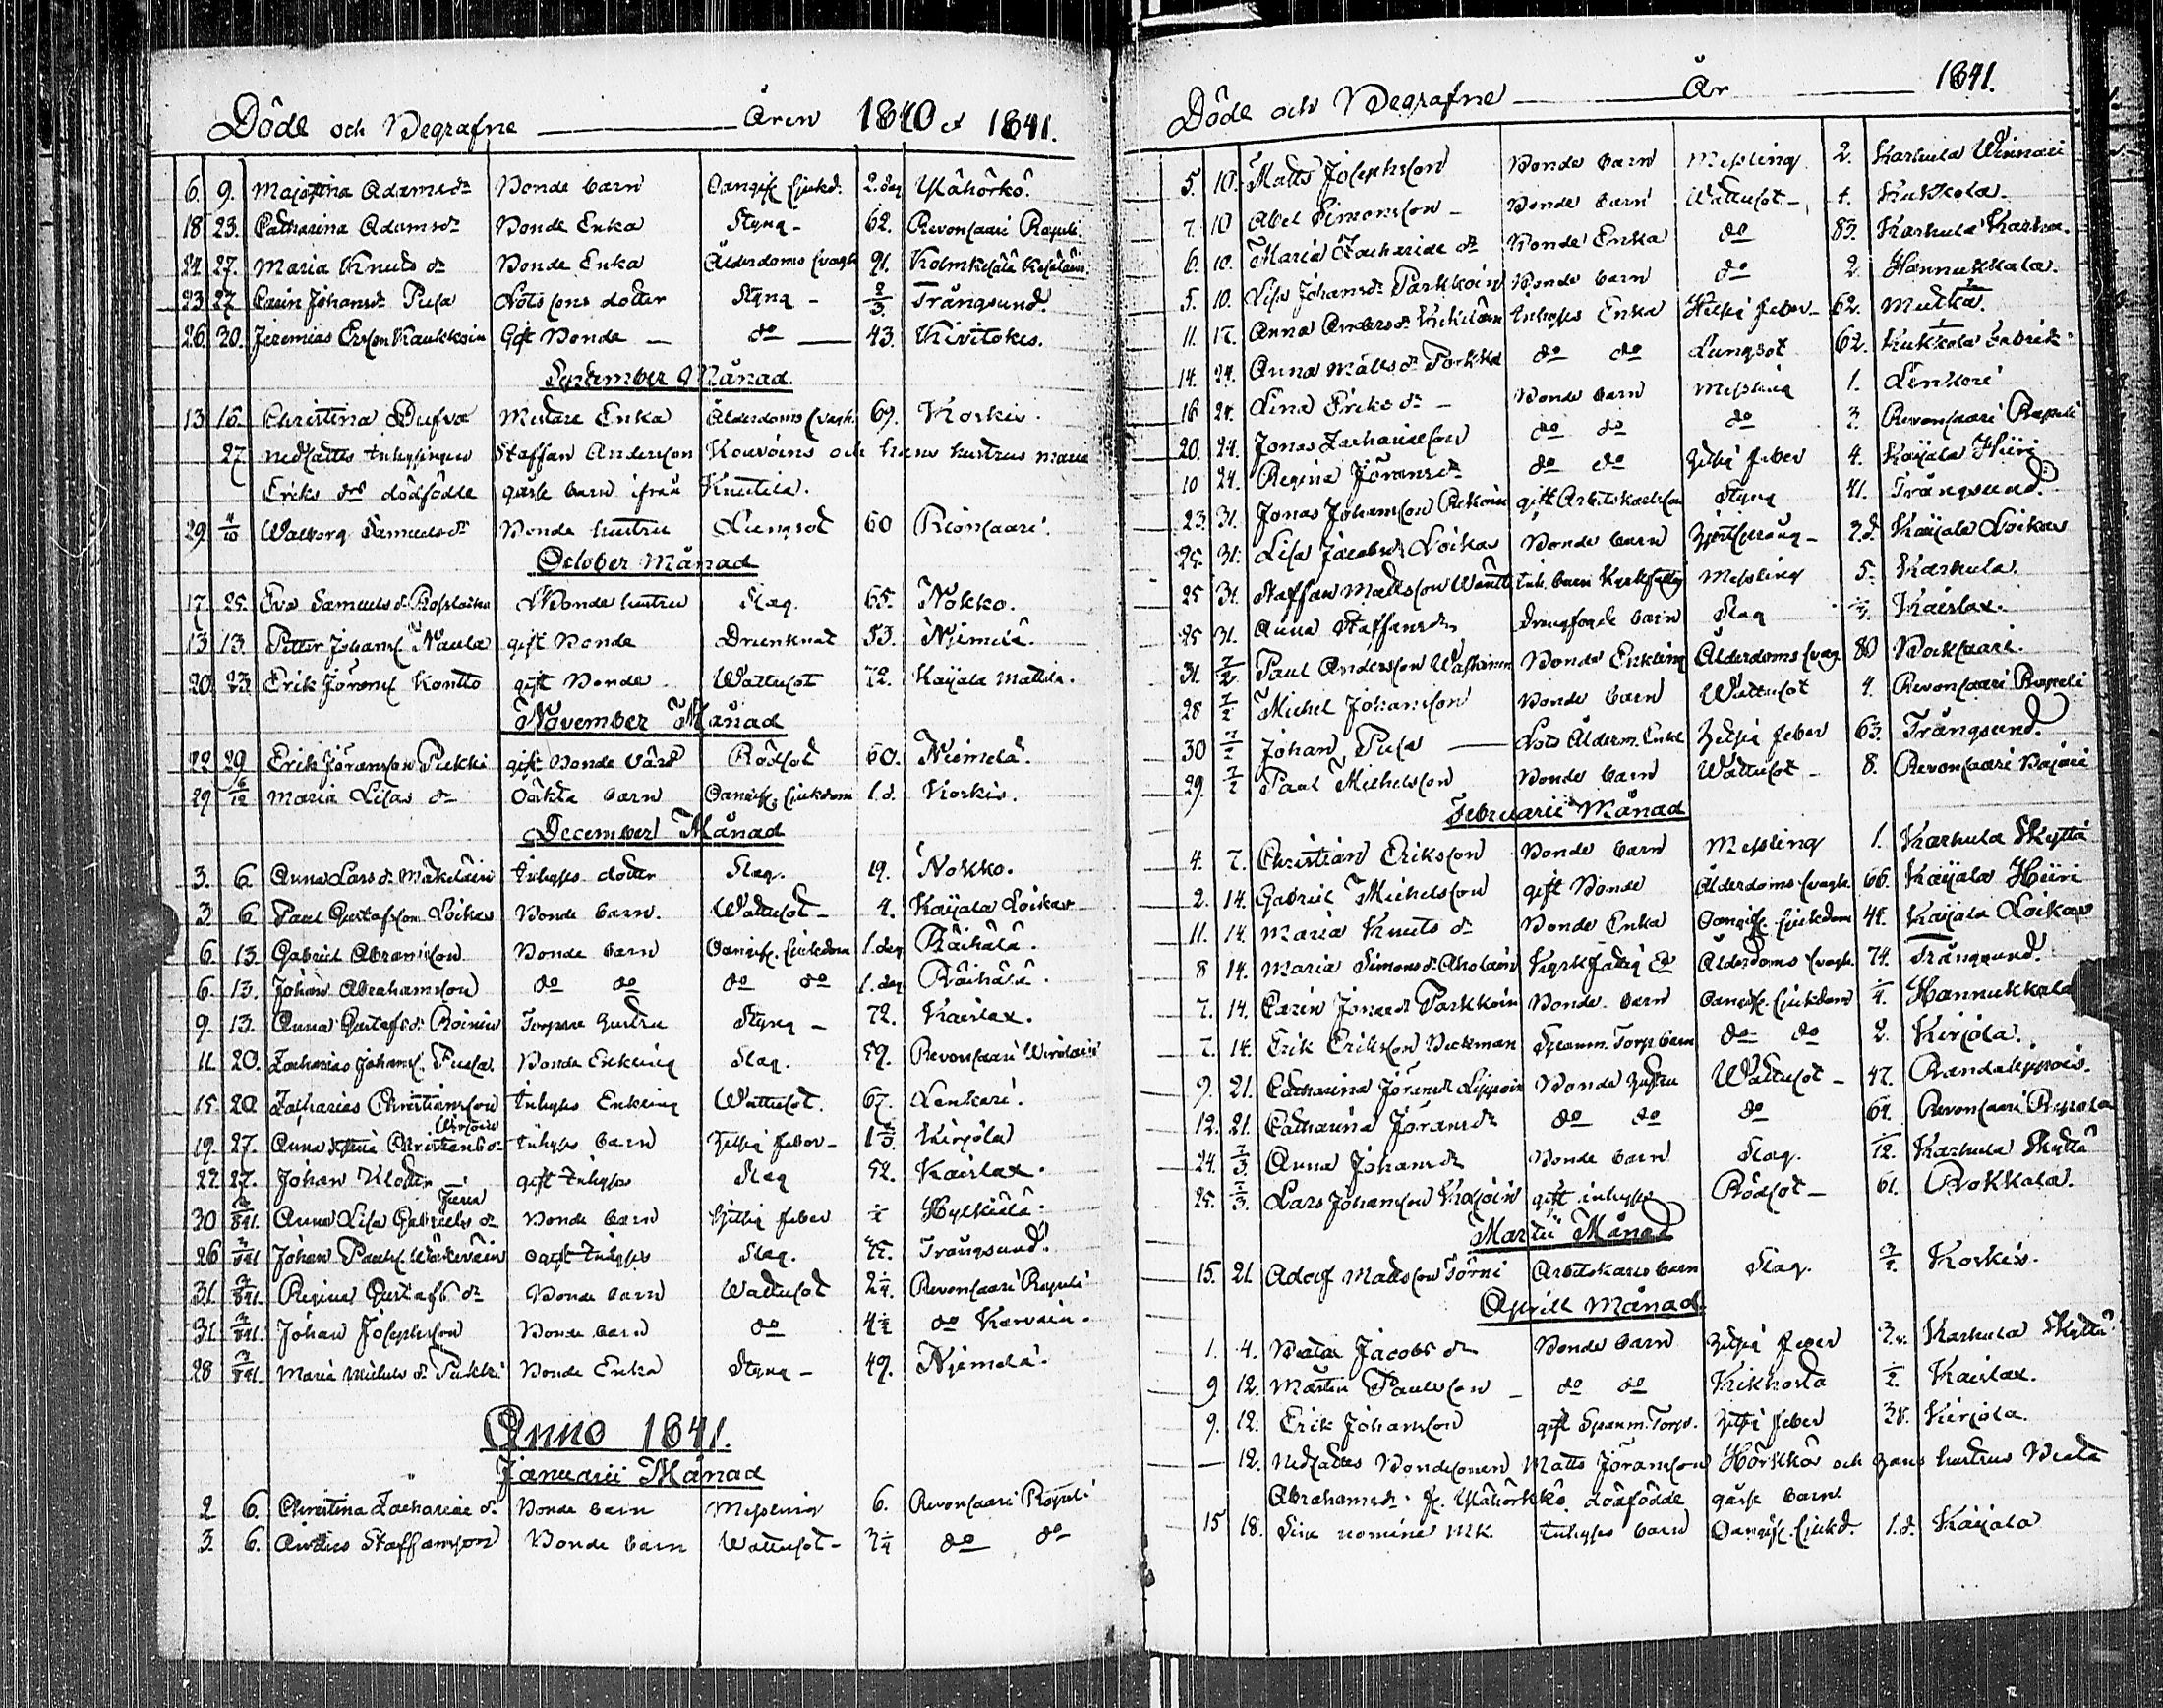 Döde och Begrafne Åren 1840 et 1841.
6. 9. Maja Stina Adamsdr Bonde barn Oangif. sjukd. 2. dag Ylähörkö.
18 23. Catharina Adamsdr Bonde Enka Styng - 62. Revonsaari Rapeli.
24 27. Maria Knutsdr Bonde Enka Ålderdoms svagh 91. Kolmkesälä
23 27. Carin Johansdr Pusa Lotssons dotter Styng - 2/3 Trångsund.
26. 30. Jeremias Ersson Kaukkoin Gift Bonde do 43. Kivitokes.
September Månad.
13 16. Christina Dufva Enka Ålderdoms svagh. 69. Korkis.
27. nedsattes inhysingen Staffan Andersson Kouvoins och hans hustrus Maria
Eriks drs dödfödde gosse barn ifrån Knutila.
29 4/10 Walborg Samuelsdr Bonde hustru Lungsot 60 Rionsaari.
October Månad
17. 25. Eva Samuelsdr Bonde hustru Slag. 65. Nokko.
13 13. Petter Johans. Naula gift Bonde Drunknat 53. Niemelä.
20. 23. Erik Jörans. Kontto gift Bonde Wattusot 72. Kaijala Mattila.
November Månad
22 29 Erik Jöransson Pukki gift Bonde Rödsot 60. Niemelä.
29 6/12 Maria Lisas dr Oäkta barn Oangif. sjukdom 1. d. Korkis.
December Månad
3. 6. Anna Larsdr Mäkeläin inhyses dotter Slag. 19. Nokko.
3 6 Paul Gustafsson Loikas Bonde barn. Wattusot - 4. Kaijala Loikas
6. 13. Gabriel Abramsson Bonde barn Oangif. sjukdom 1. dag Räihälä.
6. 13. Johan Abrahamsson do do do do 1. dag Räihälä.
9. 13. Anna Gustafsdr Roinin Torpare hustru Styng - 72. Kaislax.
11. 20. Zacharias Johans. Pusa Bonde Enkling Slag. 59. Revonsaari Wirolain
15 20 Zacharias Christiansson inhyses Enkling Wattusot. 67. Lenkeri.
19. 27. Anna Christiansdr inhyses barn Hettig feber - Kirjola
22. 27. Johan Klotter gift inhyses Slag 52. Kaislax.
30 3/841. Anna Lisa Gabrielsdr Bonde barn Hettig feber Hylkiälä.
26 3/841 Johan Pauls. gift inhyses Slag. Trångsund.
31 3/841. Regina Gustafsdr Bonde barn Wattusot 2 Revonsaari Rapeli
31 3/841. Johan Josephsson Bonde barn do 4 do Karvain.
28 3/841. Maria Michelsdr Pukki Bonde Enka Styng - 49. Niemelä.
Anno 1841.
Januarii Månad
2 6. Christina Zachariaedr. Bonde barn Messling 6. Revonsaari Rapeli
3. 6. Anders Staffansson Bonde barn Wattusot - 3 do do
Döde och Begrafne År 1841.
5. 10. Matts Josephsson Bonde barn Messling 2. Karhula Winnari
7. 10 Abel Simonsson - Bonde barn Wattusot - Kukkola.
6. 10. Maria Zachariaedr Bonde Enka do 83. Karhula
5. 10. Lisa Johansdr Parkkoin Bonde barn do 2. Hannukkala.
11. 17. Anna Andersdr inhyses Enka Hettig feber - 62.
14. 24. Anna Mattsdr Torkkel do do Lungsot 62. Kukkola Fabrik
16 24. Lena Eriksdr - Bonde barn Messling 1. Lenkeri
20. 24. Jonas Zachariaesson do do do 3. Revonsaari Rapeli
10 24. Regina Jöransdr do do Hettig feber 4. Kaijala Hiiri
23. 31. Jonas Johansson gift Arbetskarlsson Styng 41. Trångsund.
25. 31. Lisa Jacobsdr Loikas Bonde barn 3. d. Kaijala Loikas
25 31. Staffan Mattsson inh. barn Messling 5. Karhula.
25 31. Anna Staffansdr barn Slag Kaislax.
31. 7/2 Paul Andersson Bonde Enkling Ålderdoms svag. 80 Bocksaari.
28 7/2 Michel Johansson Bonde barn Wattusot 4. Revonsaari Rapeli
30 7/2 Johan Pusa Lots Ålderm. Enkl. Hettig feber 63. Trångsund.
29. 7/2 Paul Michelsson Bonde barn Wattusot - 8. Revonsaari
Februarii Månad
4. 7. Christian Eriksson Bonde barn Messling 1. Karhula Skyttä
2. 14. Gabriel Michelsson gift Bonde Ålderdoms svagh. 66. Kaijala Hiiri
11. 14. Maria Knutsdr Bonde Enka Oangif. sjukdom Kaijala Loikas
8 14. Maria Simonsdr Aholain Kyrkfattig Ålderdoms svagh. 74. Trångsund.
7. 14. Carin Jonaedr Parkkoin Bonde barn Oangif. sjukdom Hannukkala
7. 14. Erik Eriksson Beckman Spanm. Torp. barn do do 2. Kirjola.
9. 21. Catharina Jöransdr Lippoin Bonde hustru Wattusot - 47. Randalippois.
12. 21. Catharina Jöransdr do do do 64. Revonsaari
24. 7/3 Anna Johansdr Bonde barn Slag. Karhula Skyttä
25. 7/3. Lars Johansson gift inhyses Rödsot - 61. Rokkala.
Martii Månad
15. 21. Adolf Mattsson Törni Arbetskarls barn Slag. Korkis.
Aprill Månad.
1. 4. Beata Jacobsdr Bonde barn Hettig feber 3 v. Karhula Skyttä
9 12. Mårten Paulsson - do do Kikhosta Kaislax.
9. 12. Erik Johansson gift Spanm. Torp. Hettig feber 38. Kirjola.
— 12. nedsattes Bondesonen Matts Jöransson Hörkkös och hans hustrus Beata
Abrahamsdr. fr. Ylähörkkö dödfödde gosse barn
15 18. Sine nomine MK. inhyses barn Oangif. sjukd. 1. d. Kaijala